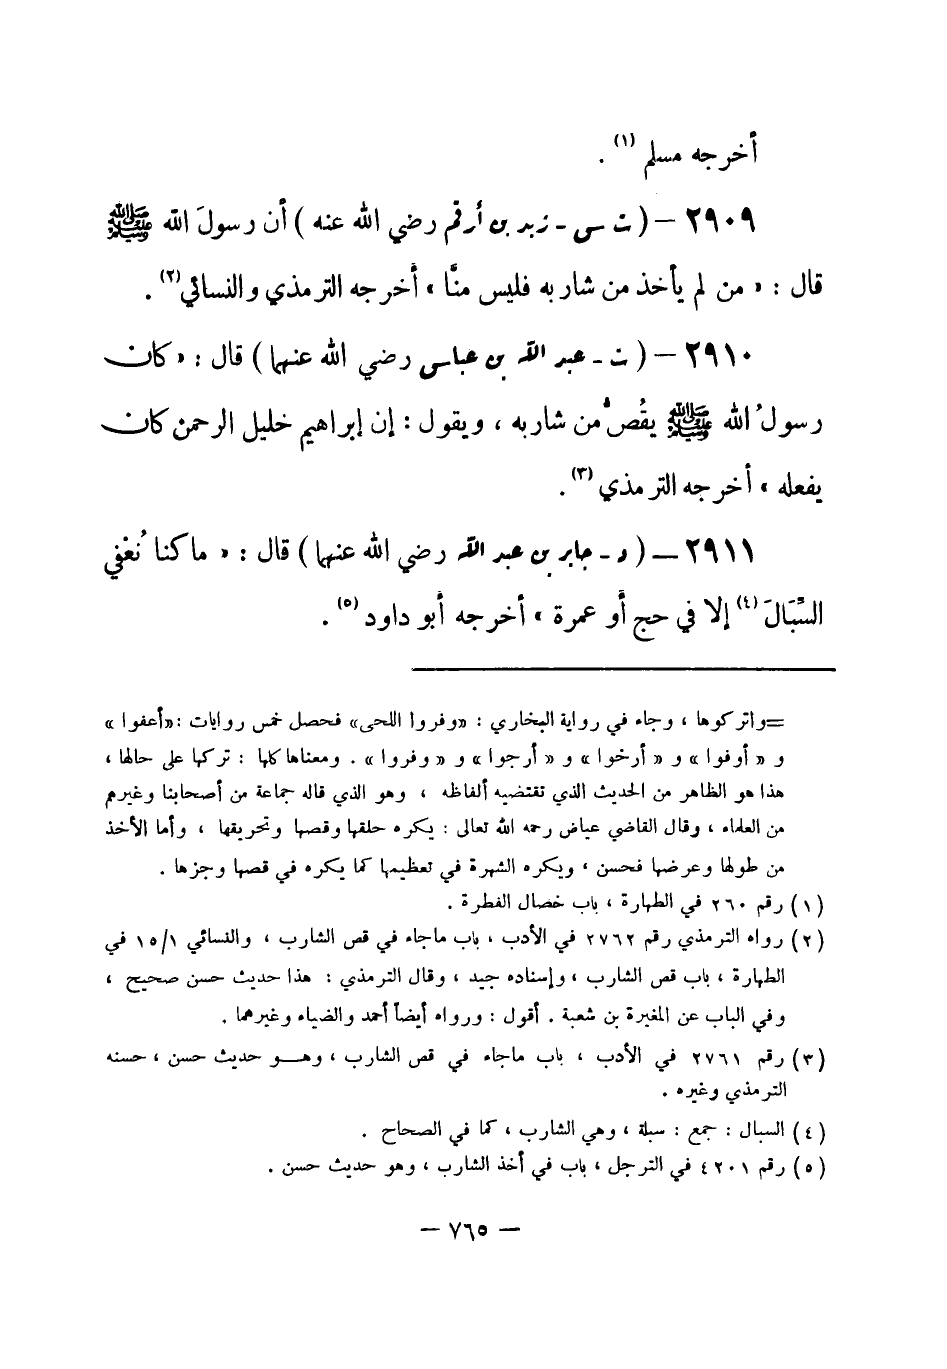 أخرجه مسلم (١) .
٢٩٠٩ - ( ت س - زيد بن أرقم رضي الله عنه ) أن رسولَ الله ﷺ
قال : « من لم يأخذ من شاربه فليس منَّا » أخرجه الترمذي والنسائي(٢) .
٢٩١٠ - ( ت - عبد الله بن عباس رضي الله عنهما ) قال : « كان
رسولُ الله ﷺ يقُصُّ من شاربه ، ويقول : إن إبراهيم خليل الرحمن كان
يفعله » أخرجه الترمذي (٣) .
٢٩١١ - ( د - جابر بن عبد الله رضي الله عنهما ) قال : « ما كنا نُعْفي
السِّبَالَ (٤) إلا في حج أو عمرة » أخرجه أبو داود (٥) .
=واتركوها ، وجاء في رواية البخاري : «وفروا اللحى» فحصل خمس روايات :«أعفوا »
و « أوفوا » و « أرخوا » و « أرجوا » و « وفروا » . ومعناها كلها : تركها على حالها ،
هذا هو الظاهر من الحديث الذي تقتضيه ألفاظه ، وهو الذي قاله جماعة من أصحابنا وغيرهم
من العلماء ، وقال القاضي عياض رحمه الله تعالى : يكره حلقها وقصها وتحريقها ، وأما الأخذ
من طولها وعرضها فحسن ، ويكره الشهرة في تعظيمها كما يكره في قصها وجزها .
(١) رقم ٢٦٠ في الطهارة ، باب خصال الفطرة .
(٢) رواه الترمذي رقم ٢٧٦٢ في الأدب ، باب ماجاء في قص الشارب ، والنسائي ١٥/١ في
الطهارة ، باب قص الشارب ، وإسناده جيد ، وقال الترمذي : هذا حديث حسن صحيح ،
وفي الباب عن المغيرة بن شعبة . أقول : ورواه أيضاً أحمد والضياء وغيرهما .
(٣) رقم ٢٧٦١ في الأدب ، باب ماجاء في قص الشارب ، وهـو حديث حسن ، حسنه
الترمذي وغيره .
(٤) السبال : جمع : سبلة ، وهي الشارب ، كما في الصحاح .
(٥) رقم ٤٢٠١ في الترجل ، باب في أخذ الشارب ، وهو حديث حسن .
- ٧٦٥ -